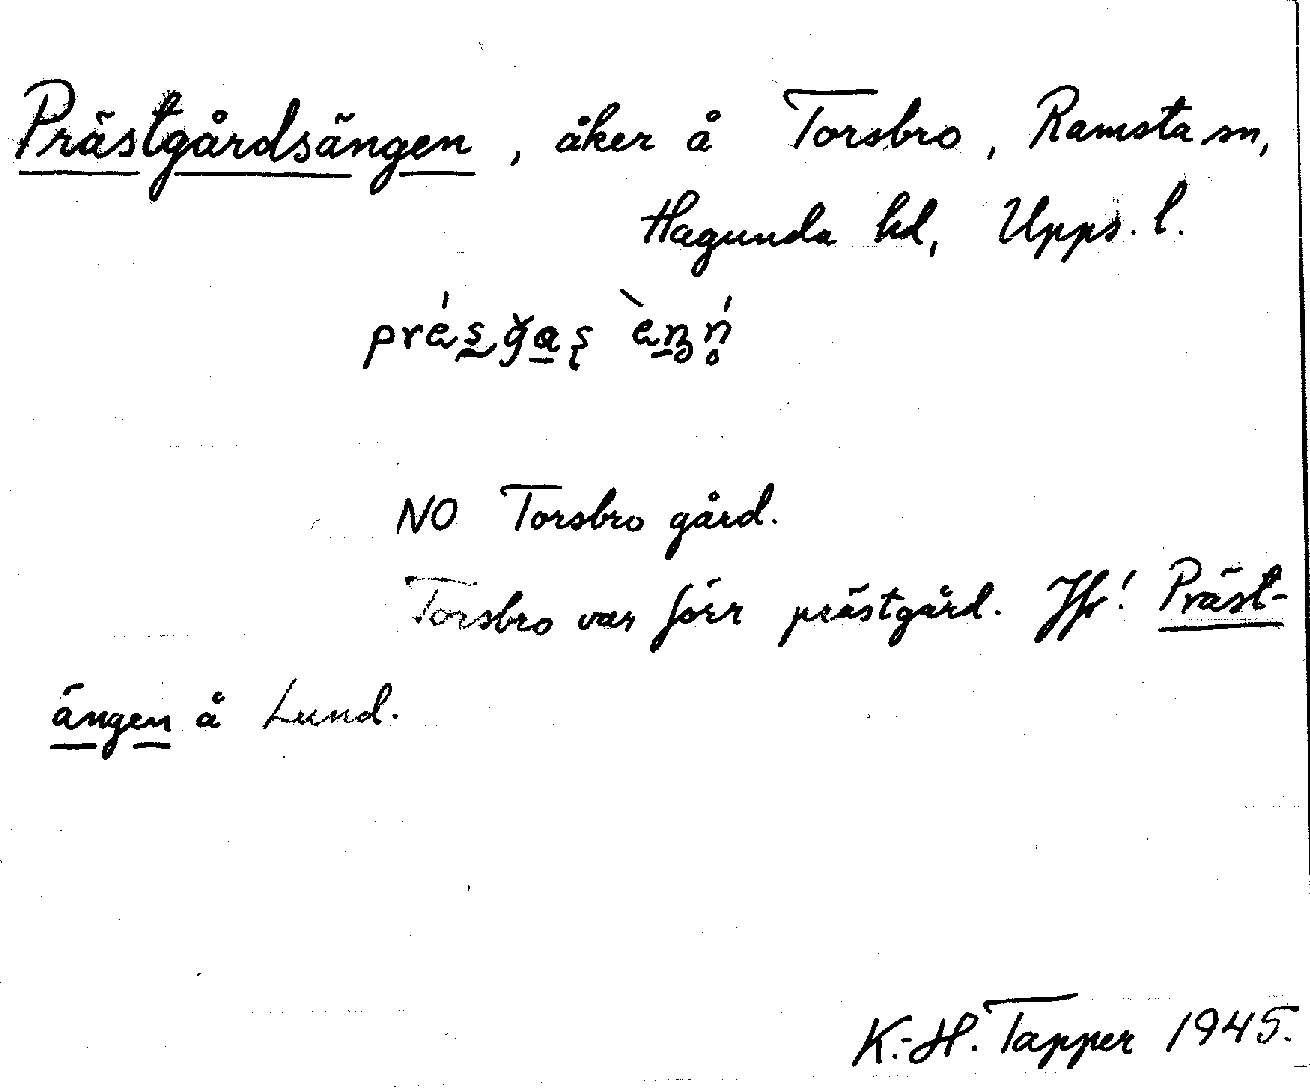 Prästgårdsängen, åker å Torsbro, Ramsta sn,
Hagunda hd, Upps. l.
NO Torsbro gård.
Torsbro var förr prästgård. Jfr! Präst-
ängen å Lund.
K.-H. Tapper 1945.